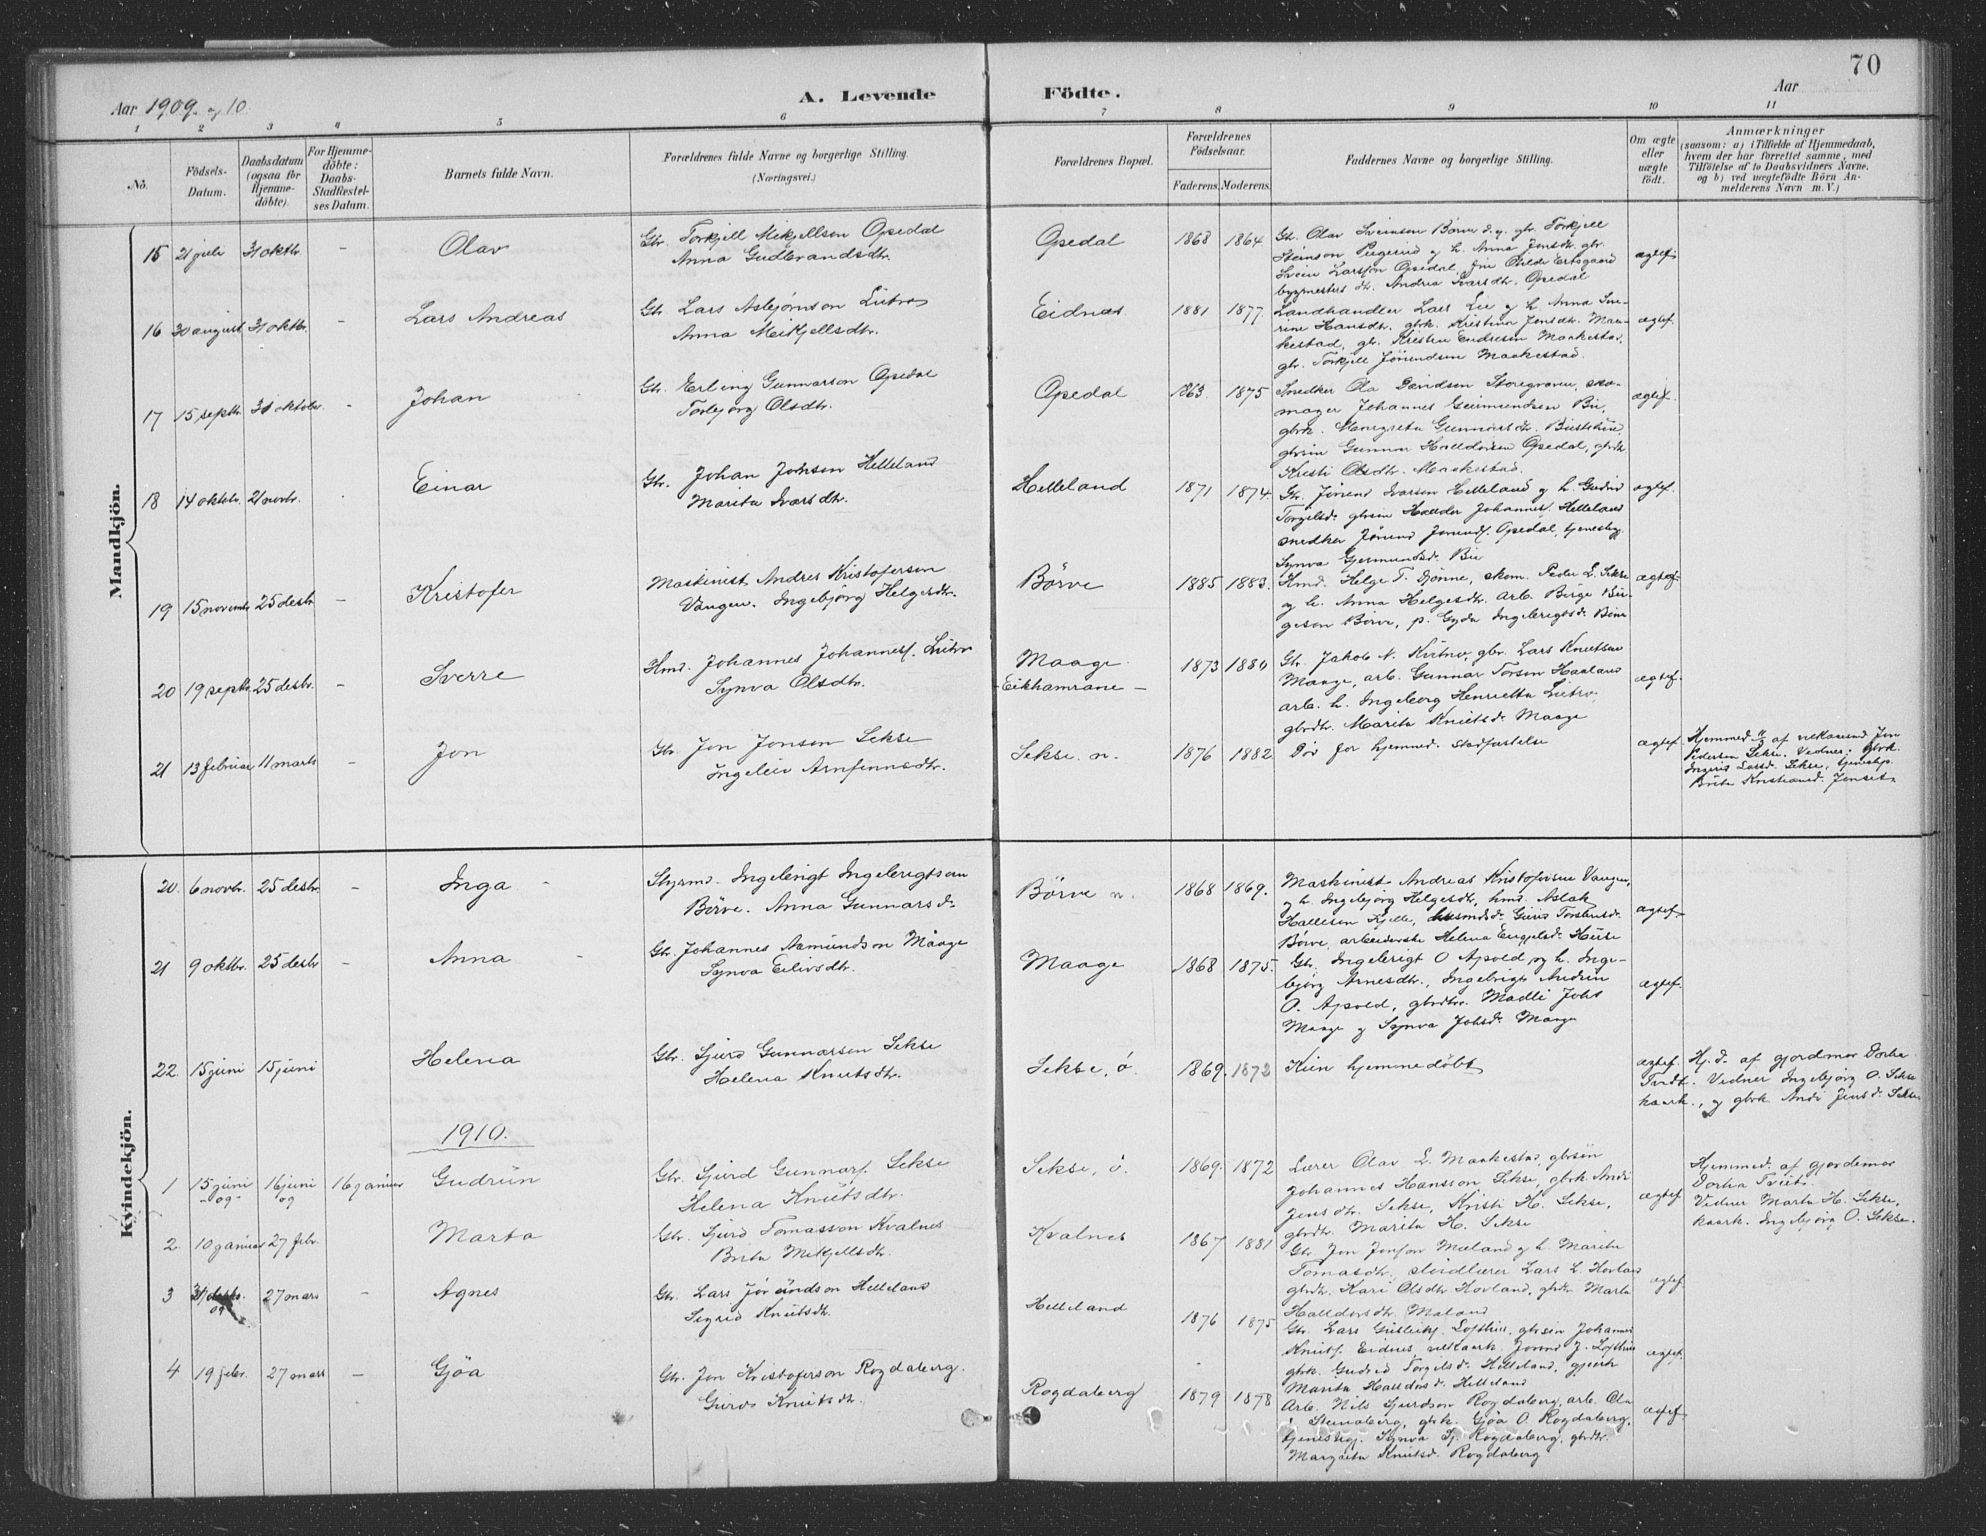 70
Aar 1909 og 10. A. Levende Födte. Aar
1 2 3 4 5 6 7 8 9 10 11
No.
Födsels-Datum.
Daabsdatum (ogsaa for Hjemme-döbte).
For Hjemme-döbte: Daabs-Stadfæstel-ses Datum.
Barnets fulde Navn.
Forældrenes fulde Navne og borgerlige Stilling.
(Næringsvei.)
Forældrenes Bopæl.
Forældrenes Födselsaar.
Faderens. Moderens.
Faddernes Navne og borgerlige Stilling.
Om ægte eller uægte födt.
Anmærkninger
(saasom: a) i Tilfælde af Hjemmedaab,
hvem der har forrettet samme, med
Tilföielse af to Daabsvidners Navne,
og b) ved uægtefödte Börn An-
melderens Navn m. V.)
Mandkjön.
15 21 juli 31 oktbr. - Olav
Gbr. Torkjell Mikjellson Opedal
Anna Gudbrandsdtr.
Opedal 1868 1864
Gbr. Olav Sveinson Börve d.y. gbr. Torkjell
Steinson h. Anna Jonsdtr. gbr.
Svein Larsson Opedal,
bygmesters dtr. Andrea Ivarsdtr. Opedal
ægtef.
16 30 august 31 oktbr. - Lars Andreas
Gbr. Lars Asbjörnson Lutro
Anna Mikjellsdtr.
Eidnes 1881 1877
Landhandler Lars Lie og h. Anna Se-
rine Hansdtr. gbrk. Kristina Jonsdtr. Maa-
kestad, gbr. Kristen Endresen Maakestad,
gbr. Torkjell Jörundsen Maakestad.
ægtef.
17 15 septbr. 31 oktober - Johan
Gbr. Erling Gunnarson Opedal
Torbjörg Olsdtr.
Opedal 1863. 1875
Snedker Ola Davidsen Storegraven, sko-
mager Johannes Geirmundsen Bu,
gbrk. Margreta Gunnarsdtr.
gbrsön Gunnar Halldorsen Opedal, gbrdtr.
Kristi Olsdtr. Maakestad.
ægtef.
18 14 oktbr. 21 novbr. Einar
Gbr. Johan Johnson Helleland
Marita Ivarsdtr.
Helleland 1871 1874.
Gbr. Jörund Ivarsen Helleland og h. Gudrid
Torgilsd. gbrsön Halldor Johannes. Helleland
snedker Jörund Opedal, tjenestepg.
Synva Geirmundsd. Bu
ægtef.
19 15 november 25 desbr. - Kristofer
Maskinist Andres Kristofersen
Vangen. Ingebjörg Helgesdtr.
Börve 1885 1883.
Hmd. Helge T. Djönne, skom. Peder L. Sekse
og h. Anna Helgesdtr. arb. Börge Bör-
geson Börve, p. Gyda Ingebrigtsd. Börve
ægtef.
20 19 septbr. 25 desbr. - Sverre
Hmd. Johannes Johannes. Lutro
Synva Olsdtr.
Maage
- Eikhamrane - 1873 1880
Gbr. Jakob N. Kvitno, gbr. Lars Knutsen
Maage, arb. Gunnar Torsen Haaland
arb. h. Ingeborg Henrietta Lutro,
gbrdtr. Marita Knutsd. Maage
ægtef.
21 13 februar 11 marts - Jon
Gbr. Jon Jonson Sekse
Ingeleiv Arnfinnsdtr.
Sekse. n. 1876 1882
Död for hjemmed. stadfæstelse
ægtef.
Hjemmed. af Jon
Pedersen Sekse. Vedner: Gbrk.
Ingerid Larsd. Sekse, tjenestep.
Brita Kristiansd. Jonset
Kvindekjön.
20. 6 novbr. 25 desbr. - Inga
Styrmd. Ingebrigt Ingebrigtson
Börve. Anna Gunnarsd.
Börve n. 1868 1869.
Maskinist Andreas Kristofersen Vangen,
og h. Ingebjörg Helgesdtr, hmd. Aslak
Hallesen husmdsd. Guro Torsteinsd.
Börve, arbeiderske Helena Engelsd. Huse
ægtef.
21 9 oktbr. 25 desbr - Anna
Gbr. Johannes Aamundson Maage
Synva Eilivsdtr.
Maage 1868 1875.
Gbr. Ingebrigt O Apold og h. Inge-
björg Arnesdtr., Ingebrigt Andrea
O. Apold, gbrdtr. Madli Johs
Maage og Synva Johsd. Maage
ægtef.
22. 15 juni 15 juni Helena
Gbr. Sjurd Gunnarson Sekse
Helena Knutsdtr.
Sekse, ö. 1869. 1872
Kun hjemmedöbt
ægtef.
Hj.d. af gjordmor Dortea
Tvedt. Vedner Ingebjörg O. Sekse
kaark., og gbrk. Andi Jensd. Sekse.
1910.
1 15 juni -og- 16 juni og 16 januar Gudrun
Gbr. Sjurd Gunnars. Sekse
Helena Knutsdtr.
Sekse, ö. 1869. 1872
Lærer Olav L. Maakestad, gbrsön
Johannes Hansson Sekse, gbrk Andi
Jensdtr. Sekse, Kristi H. Sekse,
gbrdtr. Marita H. Sekse
ægtef.
Hjemmed. af gjordemor
Dortea Tveit.
Vedner Marta H. Sekse,
kaark. Ingebjörg O. Sekse.
2 10 januar 27 febr. Marta
Gbr. Sjurd Tomasson Kvalnes
Brita Mikjellsdtr.
Kvalnes 1867 1881
Gbr. Jon Jonson Mæland og h. Marita
Tomasdtr, Lars L. Hovland
gbrdtr. Kari Olsdtr Hovland, gbrdtr Marta
Halldorsdtr. Mæland
ægtef.
3 31 og 27 mars - Agnes
Gbr. Lars Jörundson Helleland
Sigrid Knutsdtr.
Helleland 1876 1875
Gbr. Lars Lofthus, gbrsön Johannes
Knuts. Eidnes Jorund J. Lofthus
gbrk. Gudrid Torgilsd. Helleland, gjente
Marita Halldorsd. Helleland
ægtef.
4 19 febr. 27 mars - Gjöa
Gbr. Jon Kristoferson Rogdaberg.
Guro Knutsdtr.
Rogdaberg 1879 1878
Arb. Nils Sjurdson Rogdaberg, arb. Ola
Steinaberg, gbrk. Gjöa O. Rogdaberg,
tjenestepg. Synva Sj. Rogdaberg, gbrdtr.
Margreta Knutsd. Rogdaberg
ægtef.